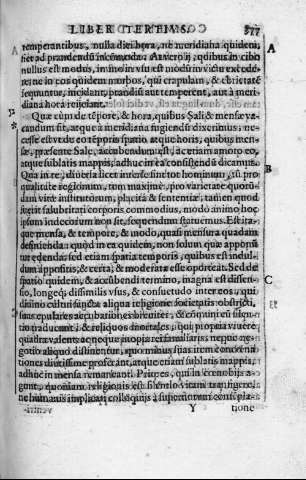 LIBER TERTIVS. 377
temperantibus, nulla diei hora, ne meridiana quidem,
fiet ad prandendū incōmoda: Atvero ij, qdbus in cibo
nullus est modus, immo in vsu est modū in victu excede
re; ne in eos quidem morbos, qui crapulam, & ebrietatē
sequuntur, incidant, prandiū aut temperent, aut à meri
diana hora reijciant.
Quæ cùm de tēpore, & hora, quibus Sali & mensæ va-
candum sit, atque à meridiana fugiendū diximus, ne-
cesse est vt de eo tēporis spatio atque horis, quibus men-
sæ, præsente Sale, accumbendum est, ac etiam amoto eo,
atque sublatis mappis, adhuc in ea cōsistendū dicamus.
A
B
C
Qua in re, diuersæ licet inter se sint tot hominum,
qualitate regionum, tum maximè, pro varietate quorū-
dam vitæ institutorum, placita & sententiæ, tamen quod
iugiter salubritati corporis commodius, modò animo hoc
ipsum indecorum non sit, sequendum statuemus. Est ita-
que mensa, & tēpore, & modo, quasi mensura quadam
desinienda: quòd in ea quidem, non solum quæ apponū
tur edenda, sed etiam spatia temporis, quibus est indul-
dum appositis, & certa, & moderata esse oporteat. Sed de
spatio quidem, & accūbendi termino, magna est dissen-
sio, longeq; dissimilis vsus, & consuetudo inter eos, qui
diuino cultui iūcti aliqua religione societatis obstricti,
suas epulares accubationes breuiter, & cōmuni cū silen-
tio traducunt: & reliquos mortales, qui propria viuere
quadra valent, ac neque inopia rei familiaris, neque ne-
gotio aliquo distinentur, quo minus suas item concerta-
tiones diutissime proferant, atque etiam sublatis mappis,
adhuc in mensa remaneant. Priores, qui in cœnobijs a-
gunt, quoniam religionis est silentio vitam transigere,
ne humanis implicari colloquijs,
Y tione